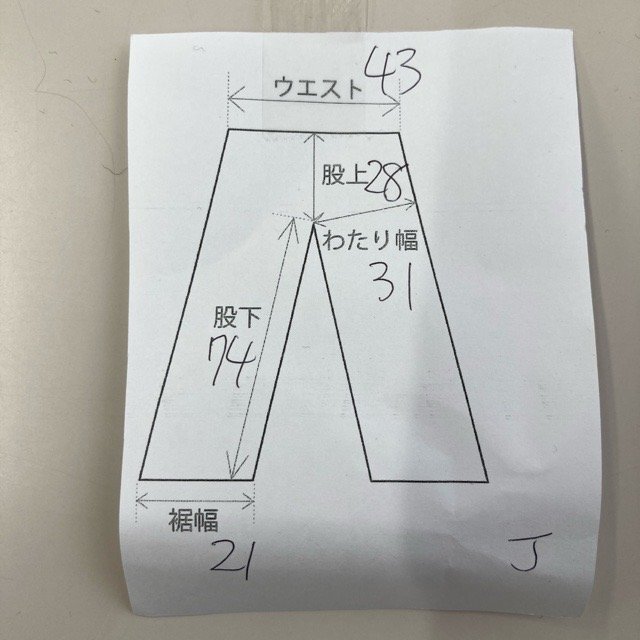 ウエスト 43
股上 28
わたり幅
31
股下
74
裾幅
21
J